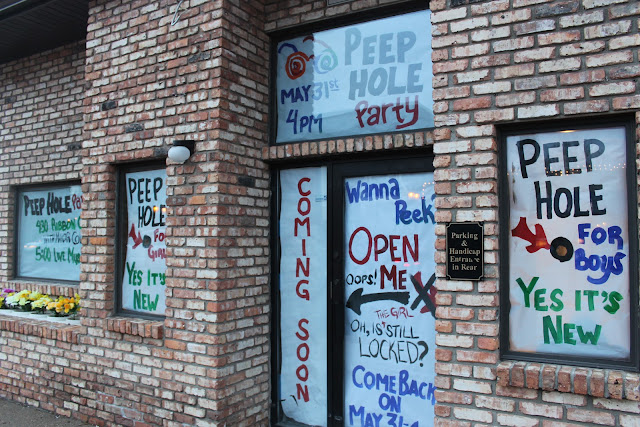 PEEP HOLE
4:30 RIBBON
5:00 LIVE
PEEP
HOLE
FOR
GIRLS
YES IT'S
NEW
PEEP
HOLE
MAY 31ST
4PM
PARTY
COMING SOON
WANNA
PEEK
OPEN
OOPS! ME
X
THE GIRL
OH, IS STILL
LOCKED?
COME BACK
ON
MAY 31
Parking
&
Handicap
Entrance
in Rear
PEEP
HOLE
FOR
BOYS
YES IT'S
NEW